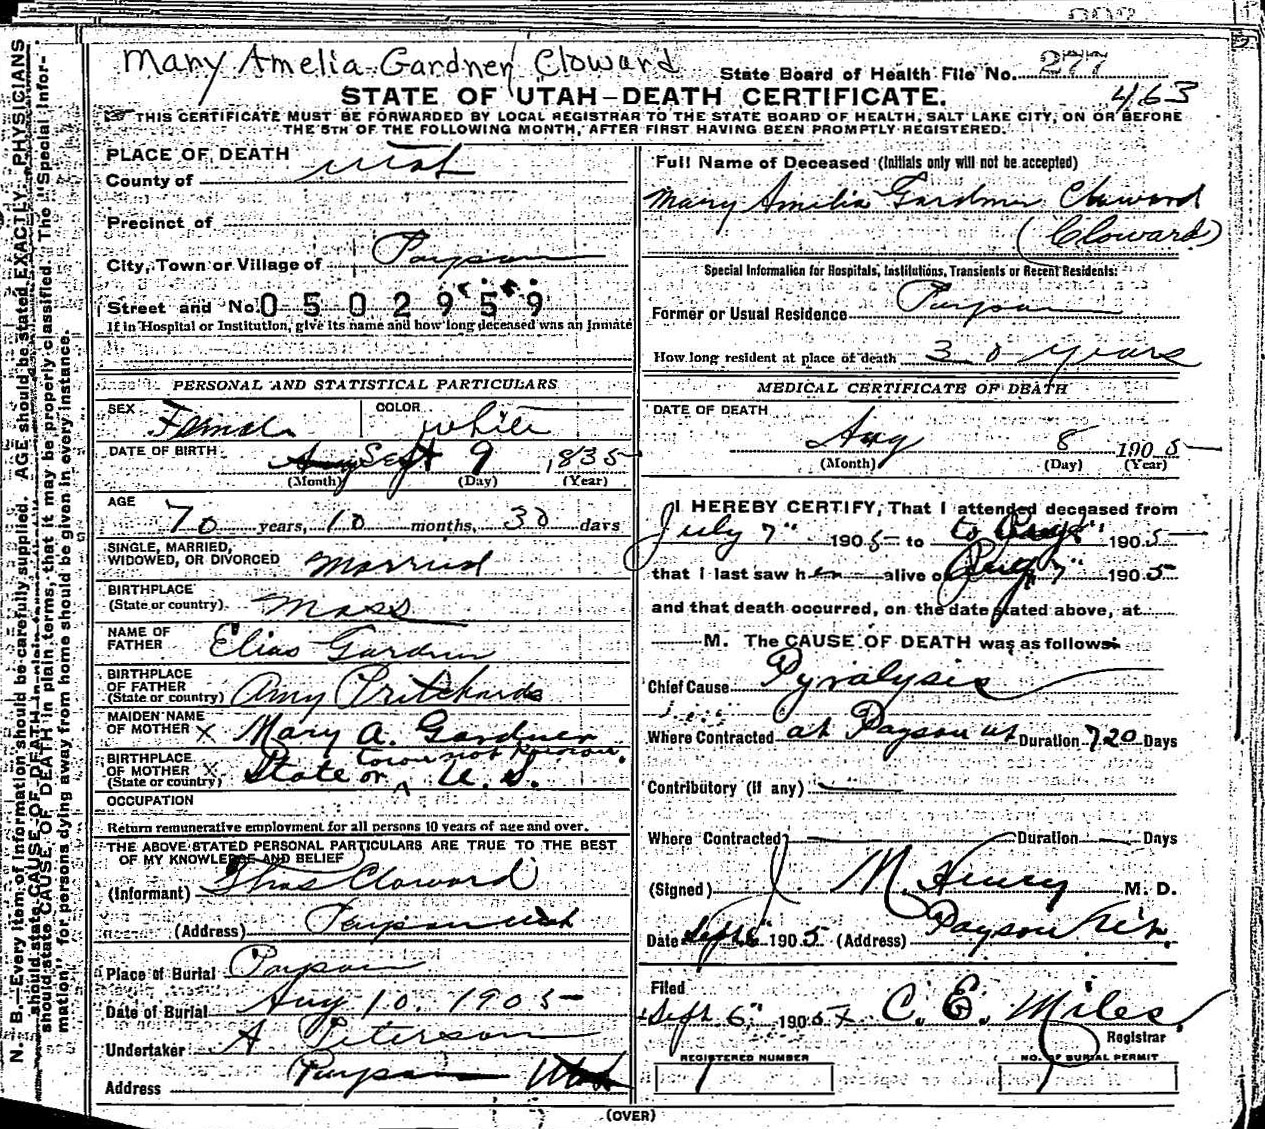 Mary Amelia Gardner Cloward
State Board of Health File No. 277
463
STATE OF UTAH—DEATH CERTIFICATE.
THIS CERTIFICATE MUST BE FORWARDED BY LOCAL REGISTRAR TO THE STATE BOARD OF HEALTH, SALT LAKE CITY, ON OR BEFORE
THE 5TH OF THE FOLLOWING MONTH, AFTER FIRST HAVING BEEN PROMPTLY REGISTERED.
N. B.—Every item of information should be carefully supplied. AGE should be stated EXACTLY. PHYSICIANS
should state CAUSE OF DEATH in plain terms, that it may be properly classified. The "Special Infor-
mation" for persons dying away from home should be given in every instance.
PLACE OF DEATH
County of Utah
Precinct of
City, Town or Village of Payson
Street and No. 0502959
If in Hospital or Institution, give its name and how long deceased was an inmate
PERSONAL AND STATISTICAL PARTICULARS
SEX Female COLOR White
DATE OF BIRTH Sept 9 1835
(Month) (Day) (Year)
AGE 70 years, 10 months, 30 days
SINGLE, MARRIED,
WIDOWED, OR DIVORCED Married
BIRTHPLACE
(State or country) Mass
NAME OF
FATHER Elias Gardner
BIRTHPLACE
OF FATHER
(State or country) Amy Pritchards
MAIDEN NAME
OF MOTHER X Mary A. Gardner
BIRTHPLACE
OF MOTHER X
(State or country) State or town not known. U. S.
OCCUPATION
Return remunerative employment for all persons 10 years of age and over.
THE ABOVE STATED PERSONAL PARTICULARS ARE TRUE TO THE BEST
OF MY KNOWLEDGE AND BELIEF
(Informant) Thos Cloward
(Address) Payson Utah
Place of Burial Payson
Date of Burial Aug 10. 1905
Undertaker A Peterson
Address Payson Utah
Full Name of Deceased (Initials only will not be accepted)
Mary Amelia Gardner Claward
(Cloward)
Special Information for Hospitals, Institutions, Transients or Recent Residents:
Former or Usual Residence Payson
How long resident at place of death 30 years
MEDICAL CERTIFICATE OF DEATH
DATE OF DEATH
Aug 8 1905
(Month) (Day) (Year)
I HEREBY CERTIFY, That I attended deceased from
July 7" 1905 to Aug 8" 1905
that I last saw her alive on Aug 7" 1905
and that death occurred, on the date stated above, at
M. The CAUSE OF DEATH was as follows:
Chief Cause Pyralysis
Where Contracted at Payson Ut Duration 720 Days
Contributory (if any)
Where Contracted Duration Days
(Signed) J. M. Henry M. D.
Date Sept 1905 (Address) Payson Utah.
Filed
Sept 6" 1905 C. E. Miles.
Registrar
REGISTERED NUMBER
1
NO. OF BURIAL PERMIT
1
(OVER)